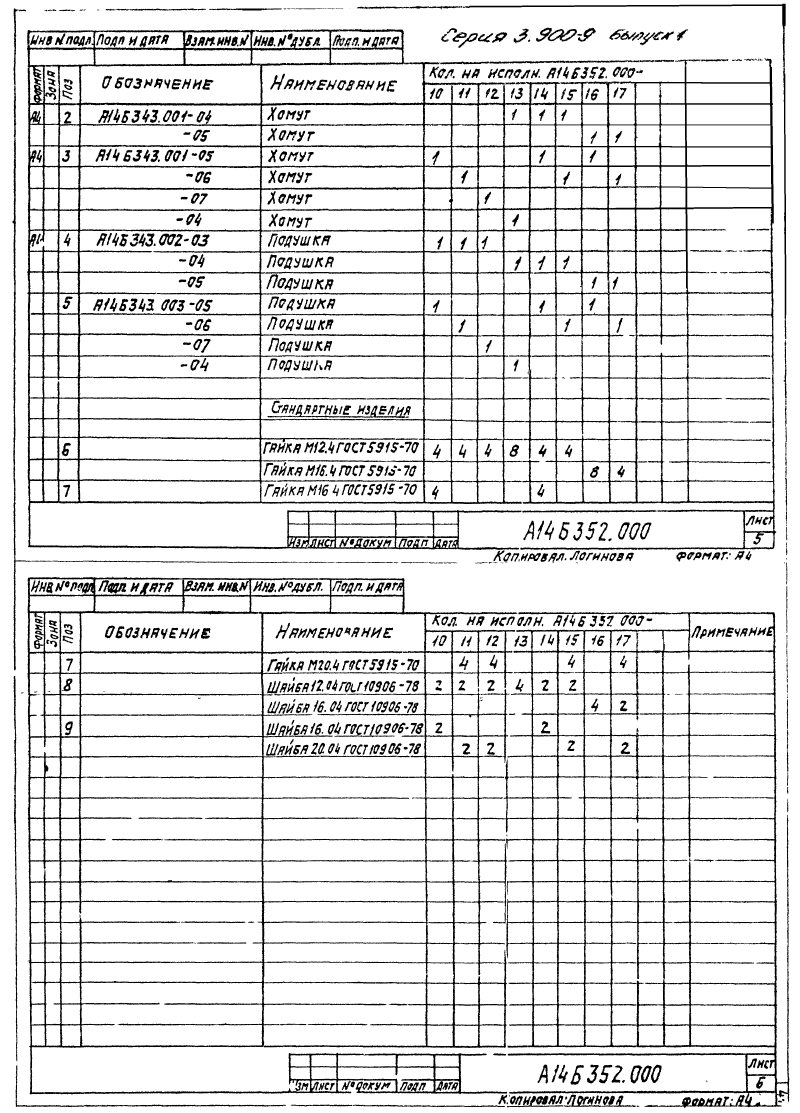 Серия 3.900-9 выпуск 1
Инв N подл. Подп и дата Взам. инв. N Инв. N° дубл. Подп. и дата
Формат Зона Поз Обозначение Наименование Кол. на исполн. А14Б352.000-
10 11 12 13 14 15 16 17
А4 2 А14Б343.001-04 Хомут 1 1 1
-05 Хомут 1 1
А4 3 А14Б343.001-05 Хомут 1 1 1
-06 Хомут 1 1 1
-07 Хомут 1
-04 Хомут 1
4 А14Б343.002-03 Подушка 1 1 1
-04 Подушка 1 1 1
-05 Подушка 1 1
5 А14Б343.003-05 Подушка 1 1 1
-06 Подушка 1 1 1
-07 Подушка 1
-04 Подушка 1
Стандартные изделия
6 Гайка М12.4 ГОСТ 5915-70 4 4 4 8 4 4
Гайка М16.4 ГОСТ 5915-70 8 4
7 Гайка М16.4 ГОСТ 5915-70 4 4
Изм Лист N° докум Подп Дата А14Б352.000 Лист 5
Копировал: Логинова Формат: А4
Инв. N° подл. Подп. и дата Взам. инв. N Инв. N° дубл. Подп. и дата
Формат Зона Поз Обозначение Наименование Кол. на исполн. А14Б352.000- Примечание
10 11 12 13 14 15 16 17
7 Гайка М20.4 ГОСТ 5915-70 4 4 4 4
8 Шайба 12.04 ГОСТ 10906-78 2 2 2 4 2 2
Шайба 16.04 ГОСТ 10906-78 4 2
9 Шайба 16.04 ГОСТ 10906-78 2 2
Шайба 20.04 ГОСТ 10906-78 2 2 2 2
Изм Лист N° докум Подп Дата А14Б352.000 Лист 6
Копировал: Логинова Формат: А4